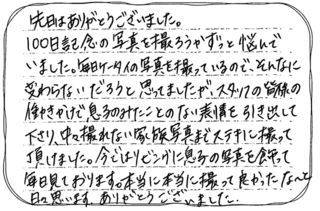 先日はありがとうございました。
100日記念の写真を撮ろうかずっと悩んで
いました。毎日ケータイの写真を撮っているので、そんなに
変わらないだろうと思ってましたが、スタッフの皆様の
働きかけで息子のみたことのない表情を引き出して
下さり、中々撮れない家族写真までステキに撮って
頂けました。今ではリビングに息子の写真を飾って
毎日見ております。本当に本当に撮って良かったなぁと
日々思います。ありがとうございました。